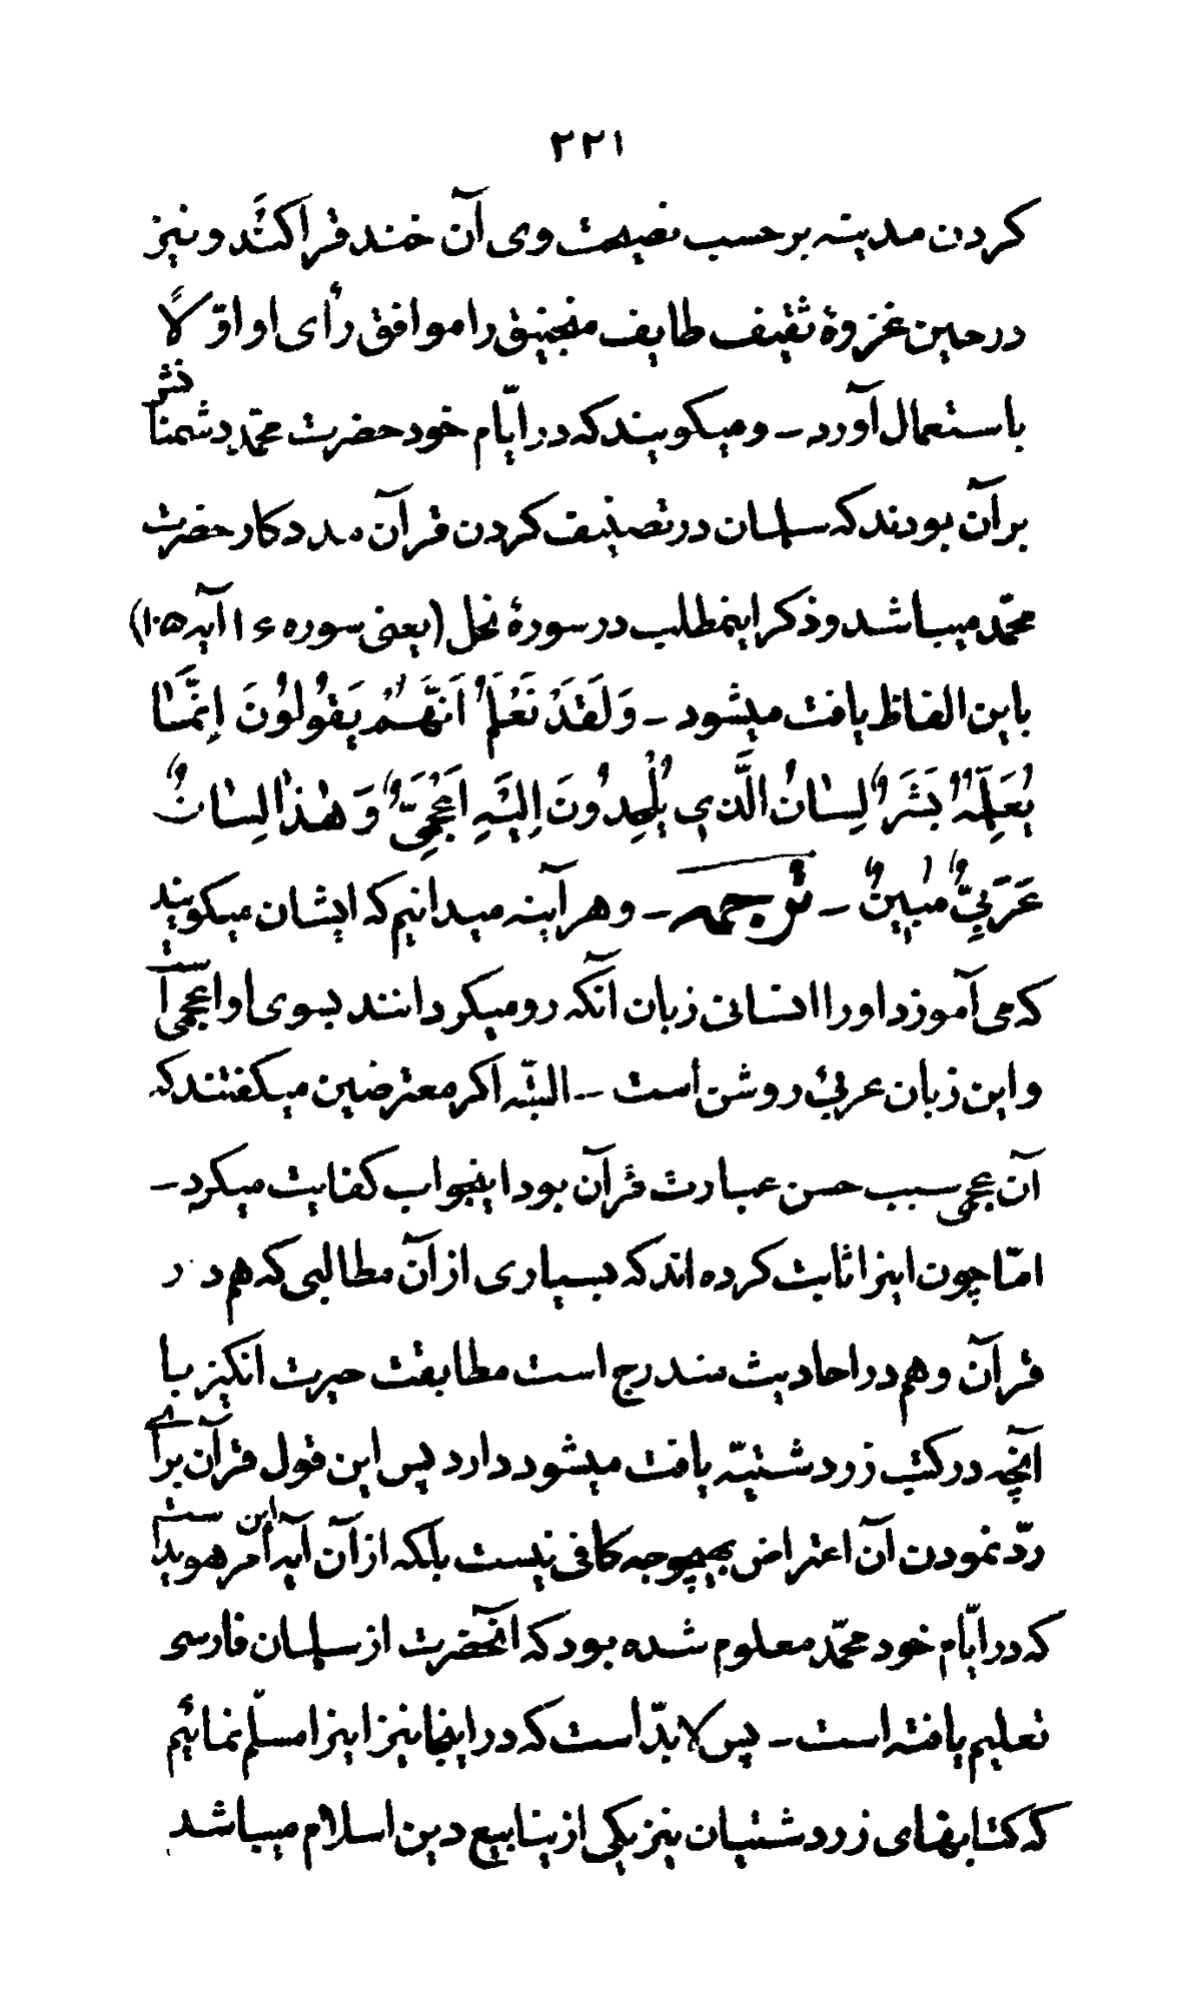 ۲۲۱
کردن مدینه بر حسب نصیحت وی آن خندق را کندند و نیز
در حین غزوهٔ ثقیف طایف منجنیق را موافق رأی او اوّلاً
باستعمال آورد ـ و میکویند که در ایّام خود حضرت محمّد دشمنانش
بر آن بودند که سلمان در تصنیف کردن قرآن مددکار حضرت
محمّد میباشد و ذکر اینمطلب در سورهٔ نحل (یعنی سوره ۱۶ آیه ۱۰۵)
باین الفاظ یافت میشود ـ وَلَقَدْ نَعْلَمُ اَنَّهُمْ یَقُولُونَ اِنَّمَا
یُعَلِّمُهُ بَشَرٌ لِسَانُ الَّذِی یُلْحِدُونَ اِلَیْهِ اَعْجَمِیٌّ وَ هٰذَا لِسَانٌ
عَرَبِیٌّ مُبِینٌ ـ ترجمه ـ و هر آینه میدانیم که ایشان میکویند
که می آموزد او را انسانی زبان آنکه رو میکردانند بسوی او اعجمی است
و این زبان عربئ روشن است ـ البتّه اکر معترضین میکفتند که
آن عجمی سبب حسن عبارت قرآن بود اینجواب کفایت میکرد ـ
امّا چون اینرا ثابت کرده اند که بسیاری از آن مطالبی که هم در
قرآن و هم در احادیث مندرج است مطابقت حیرت انکیز با
آنچه در کتب زردشتیّه یافت میشود دارد پس این قول قرآن برای
ردّ نمودن آن اعتراض بهیچوجه کافی نیست بلکه از آن آیه این امر هویدا است
که در ایّام خود محمّد معلوم شده بود که آنحضرت از سلمان فارسی
تعلیم یافته است ـ پس لابدّ است که در اینجا نیز اینرا مسلّم نمائیم
که کتابهای زردشتیان نیز یکی از ینابیع دین اسلام میباشد